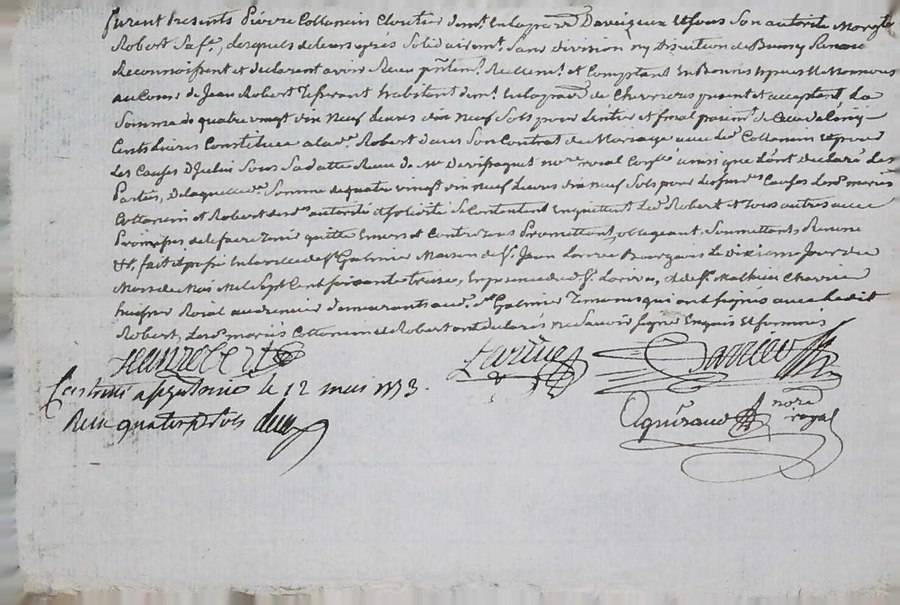 furent presents Pierre Collomin Cloutier dem.t En la parr.e Daveizeux Et sous Son autorité
Robert Sa fe., lesquels de leurs grés Solidairem.t Sans division ny
Reconnoissent et declarent avoir Receu et Comptant En Bonnes Espèces
au Cour de Jean Robert habitant dem.t En la parr.e de Chevrieres present et acceptant, La
Somme de quatre vingt dix Neuf Livres dix neuf Sols pour L'entier et final paiem.t de Celle de Cinq
Cents Livres Constituée a la d.e Robert dans Son Contrat de Mariage avec led. Collomin Et pour
Les Causes D'Iceluy Sous Sa datte Receu de Me. no.re royal ainsi que l'ont declaré Les
Parties, De laquelle d.e Somme de quatre vingt dix neuf Livres dix neuf Sols pour les Causes Les d. mariés
Collomin et Robert de d. autorité et solidité Se Contentent En quittent Led. Robert et tous autres avec
Promesses de le faire Tenir quitte Envers et Contre tous Promettant, obligeant, Soumettants Renonc
&c. fait et passé En la ville de St. Galmier Maison de Sr. Jean Bourgeois Le dixieme Jour du
Mois de Mai Mil Sept Cent soixante treize, En presence de Sr. et de Sr. Mathieu
huissier Roial audiencier demeurants aud. St. Galmier Temoins qui ont signés avec Ledit
Robert, Les d. mariés Collomin et Robert ont declarés ne Savoir signer Enquis Et sommés
Jean robert
a St galmier le 12 mai 1773.
Reçu quatorze sols
no.re
royal